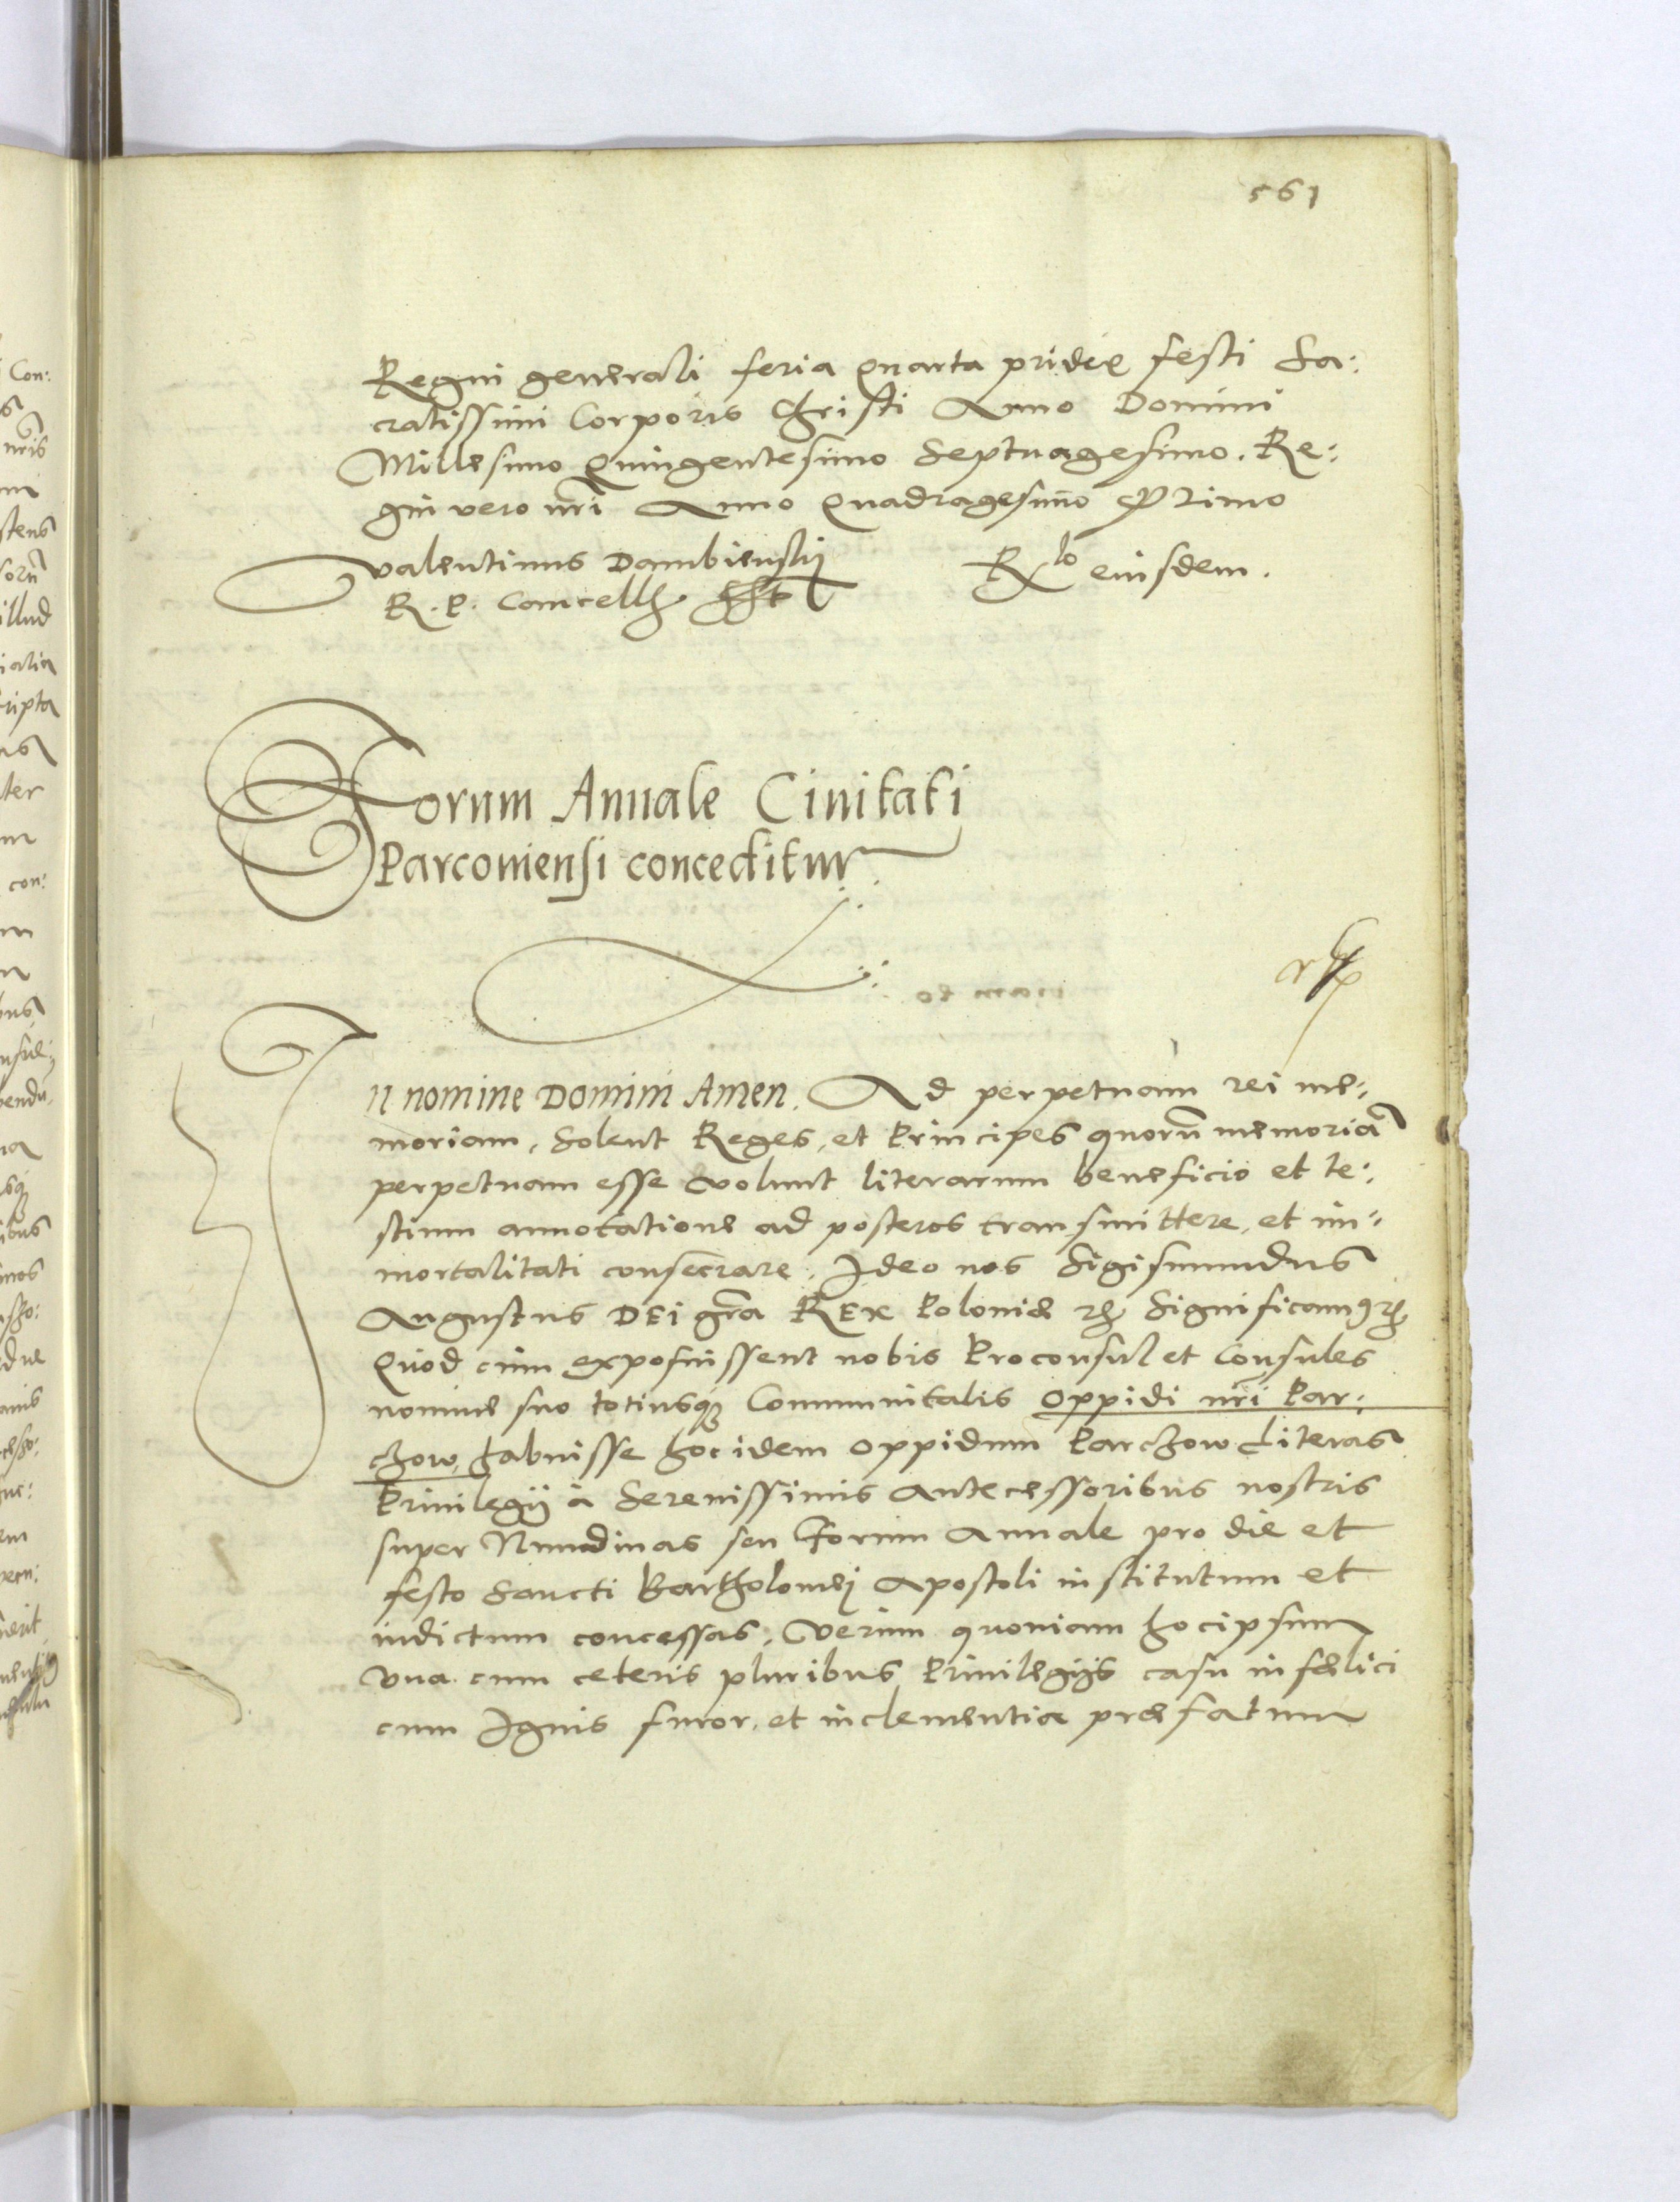 561
Regni generali feria Quarta pridie festi Sa:
cratissimi Corporis Christi Anno Domini
Millesimo Quingentesimo Septuagesimo. Re:
gni vero nri Anno Quadragesimo Primo
Valentinus Dambienskij
Rlo eiusdem.
R. P. Cancell
Forum Annale Civitati
Parcoviensi conceditur
In nomine Domini Amen. Ad perpetuam rei me:
moriam. Solent Reges, et Principes quoru memoria
perpetuam esse volunt literarum beneficio et te:
stium annotatione ad posteros transmittere, et im:
mortalitati consecrare. Ideo nos Sigismundus
Augustus DEI gra REX Poloniæ &c. Significamus &c.
Quod cum exposuissent nobis Proconsul et Consules
nomine suo totiusque Communitatis Oppidi nri Par:
chow, habuisse hoc idem oppidum Parchow Literas
Privilegij à Serenissimis Antecessoribus nostris
super Nundinas seu Forum Annale pro die et
festo Sancti Bartholomei Apostoli institutum et
indictum concessas. Verum quoniam hoc ipsum
una cum ceteris pluribus Privilegijs casu infælici
cum Ignis furor, et inclementia præfatum